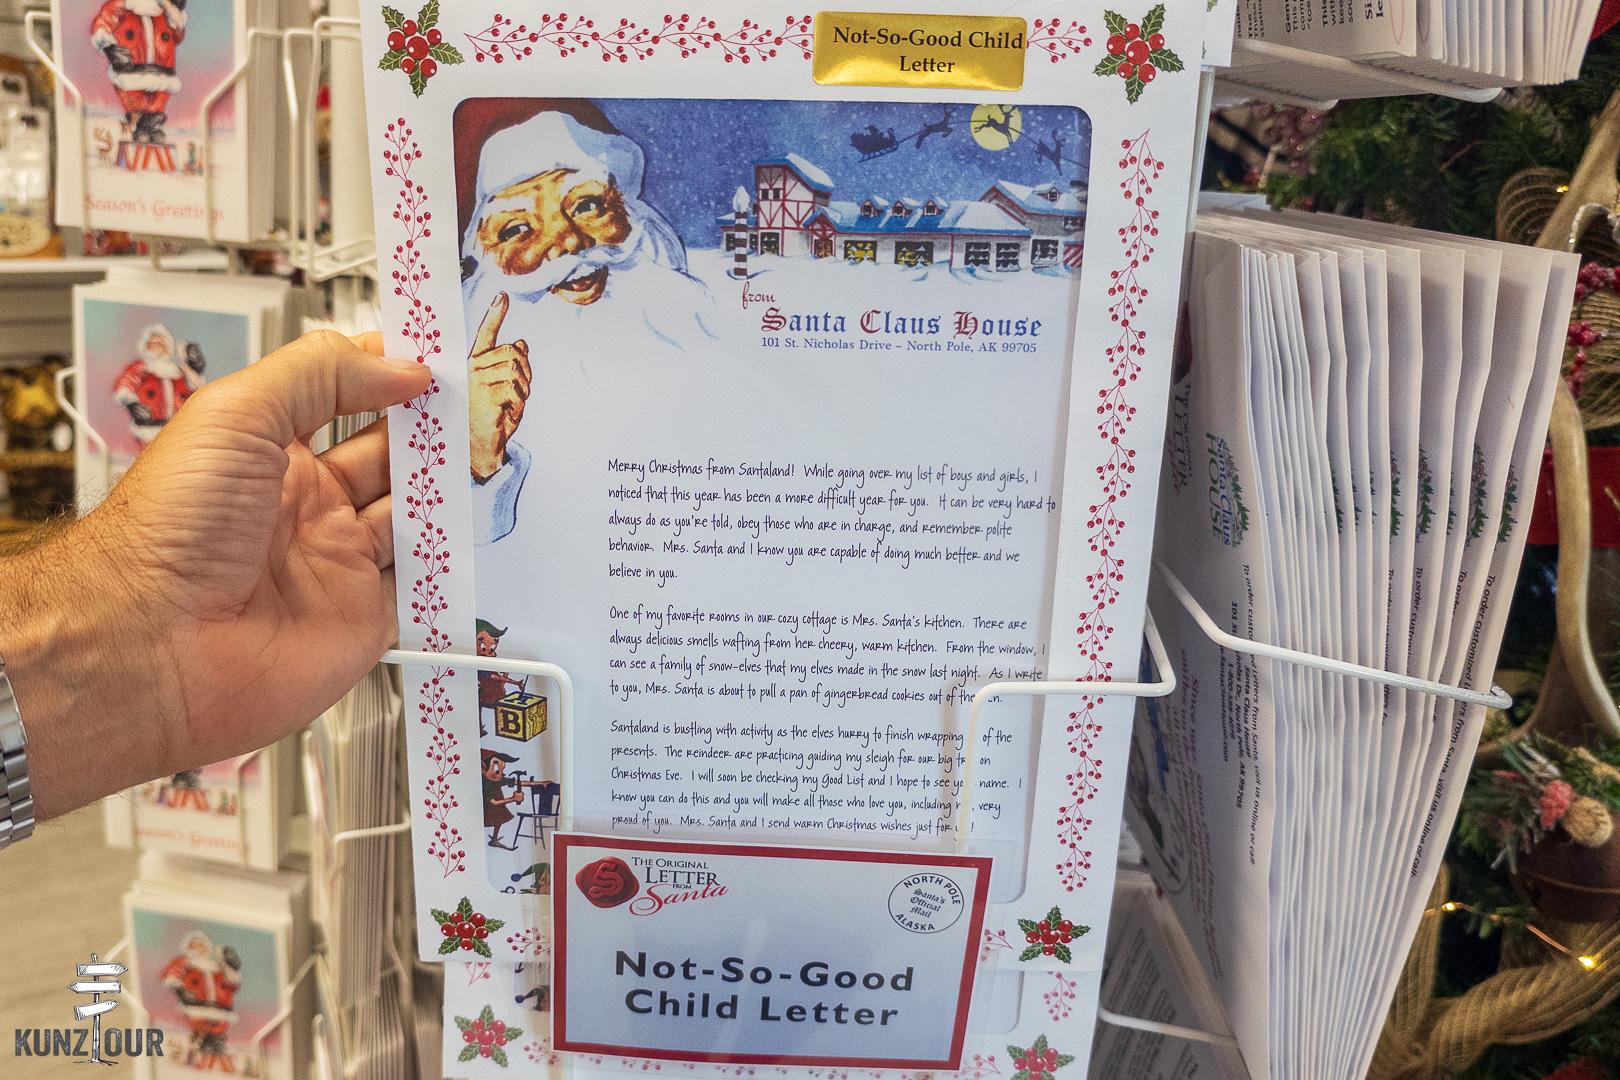 Not-So-Good Child
Letter
from
Santa Claus House
101 St. Nicholas Drive – North Pole, AK 99705
Merry Christmas from Santaland! While going over my list of boys and girls, I
noticed that this year has been a more difficult year for you. It can be very hard to
always do as you're told, obey those who are in charge, and remember polite
behavior. Mrs. Santa and I know you are capable of doing much better and we
believe in you.
One of my favorite rooms in our cozy cottage is Mrs. Santa's kitchen. There are
always delicious smells wafting from her cheery, warm kitchen. From the window, I
can see a family of snow-elves that my elves made in the snow last night. As I write
to you, Mrs. Santa is about to pull a pan of gingerbread cookies out of the
Santaland is bustling with activity as the elves hurry to finish wrapping of the
presents. The reindeer are practicing guiding my sleigh for our big on
Christmas Eve. I will soon be checking my Good List and I hope to see name. I
know you can do this and you will make all those who love you, including very
proud of you. Mrs. Santa and I send warm Christmas wishes just for !
B
THE ORIGINAL
LETTER
FROM
Santa
NORTH POLE
Santa's
Official
Mail
ALASKA
Not-So-Good
Child Letter
Season's Greetings
Season's Greetings
Santa Claus
HOUSE
KUNZTOUR